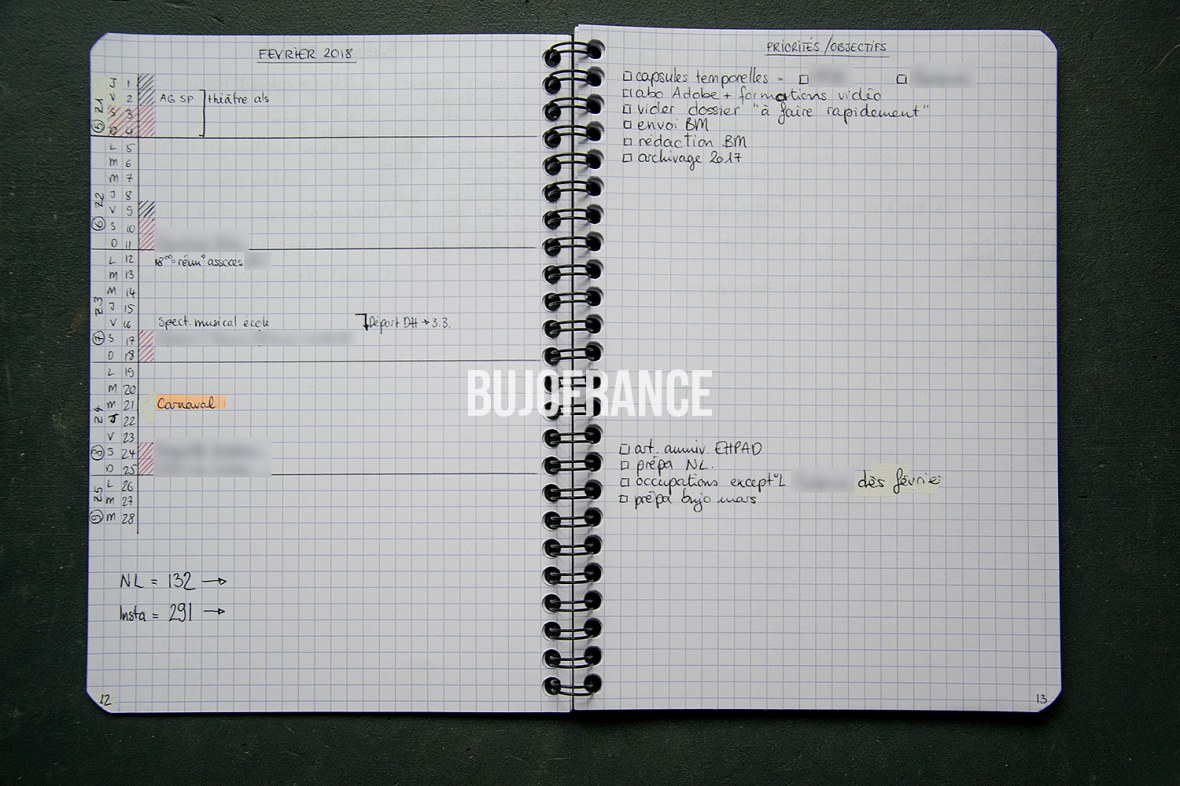 FEVRIER 2018
J 1
V 2 AG SP théâtre als
S 3
D 4
L 5
M 6
M 7
J 8
V 9
S 10
D 11
L 12 18°°=réun° assoces
M 13
M 14
J 15
V 16 Spect. musical école Départ DH → 3.3.
S 17
D 18
L 19
M 20
M 21 Carnaval
J 22
V 23
S 24
D 25
L 26
M 27
M 28
NL = 132 →
Insta = 291 →
12
PRIORITÉS /OBJECTIFS
□ capsules temporelles - □ □
□ abo Adobe + formations vidéo
□ vider dossier "à faire rapidement"
□ envoi BM
□ rédaction BM
□ archivage 2017
□ art. anniv. EHPAD
□ prépa NL.
□ occupations except°L dès février
□ prépa bujo mars
13
BUJOFRANCE